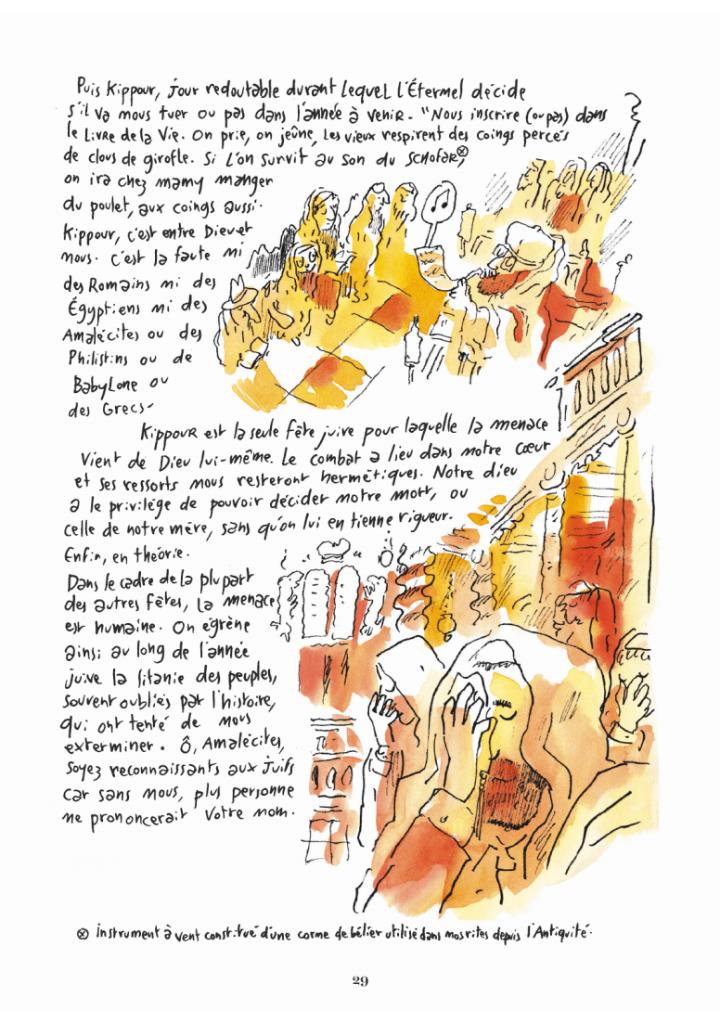 Puis Kippour, jour redoutable durant lequel l'Éternel décide
s'il va nous tuer ou pas dans l'année à venir. "Nous inscrire (ou pas) dans
le Livre de la Vie. On prie, on jeûne, les vieux respirent des coings percés
de clous de girofle. Si l'on survit au son du schofar⊗,
on ira chez mamy manger
du poulet, aux coings aussi.
Kippour, c'est entre Dieu et
nous. C'est la faute ni
des Romains ni des
Égyptiens ni des
Amalécites ou des
Philistins ou de
Babylone ou
des Grecs-
Kippour est la seule fête juive pour laquelle la menace
vient de Dieu lui-même. Le combat a lieu dans notre cœur
et ses ressorts nous resteront hermétiques. Notre dieu
a le privilège de pouvoir décider notre mort, ou
celle de notre mère, sans qu'on lui en tienne rigueur.
Enfin, en théorie.
Dans le cadre de la plupart
des autres fêtes, la menace
est humaine. On égrène
ainsi au long de l'année
juive la litanie des peuples,
souvent oubliés par l'histoire,
qui ont tenté de nous
exterminer. Ô, Amalécites,
soyez reconnaissants aux juifs
car sans nous, plus personne
ne prononcerait votre nom.
⊗ instrument à vent constitué d'une corne de bélier utilisé dans nos rites depuis l'Antiquité.
29